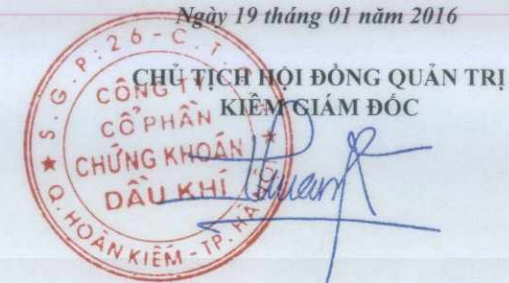 Ngày 19 tháng 01 năm 2016
CHỦ TỊCH HỘI ĐỒNG QUẢN TRỊ
KIÊM GIÁM ĐỐC
S.G.P: 26 - C.T.
CÔNG TY
CỔ PHẦN
CHỨNG KHOÁN
DẦU KHÍ
Q. HOÀN KIẾM - TP. HÀ